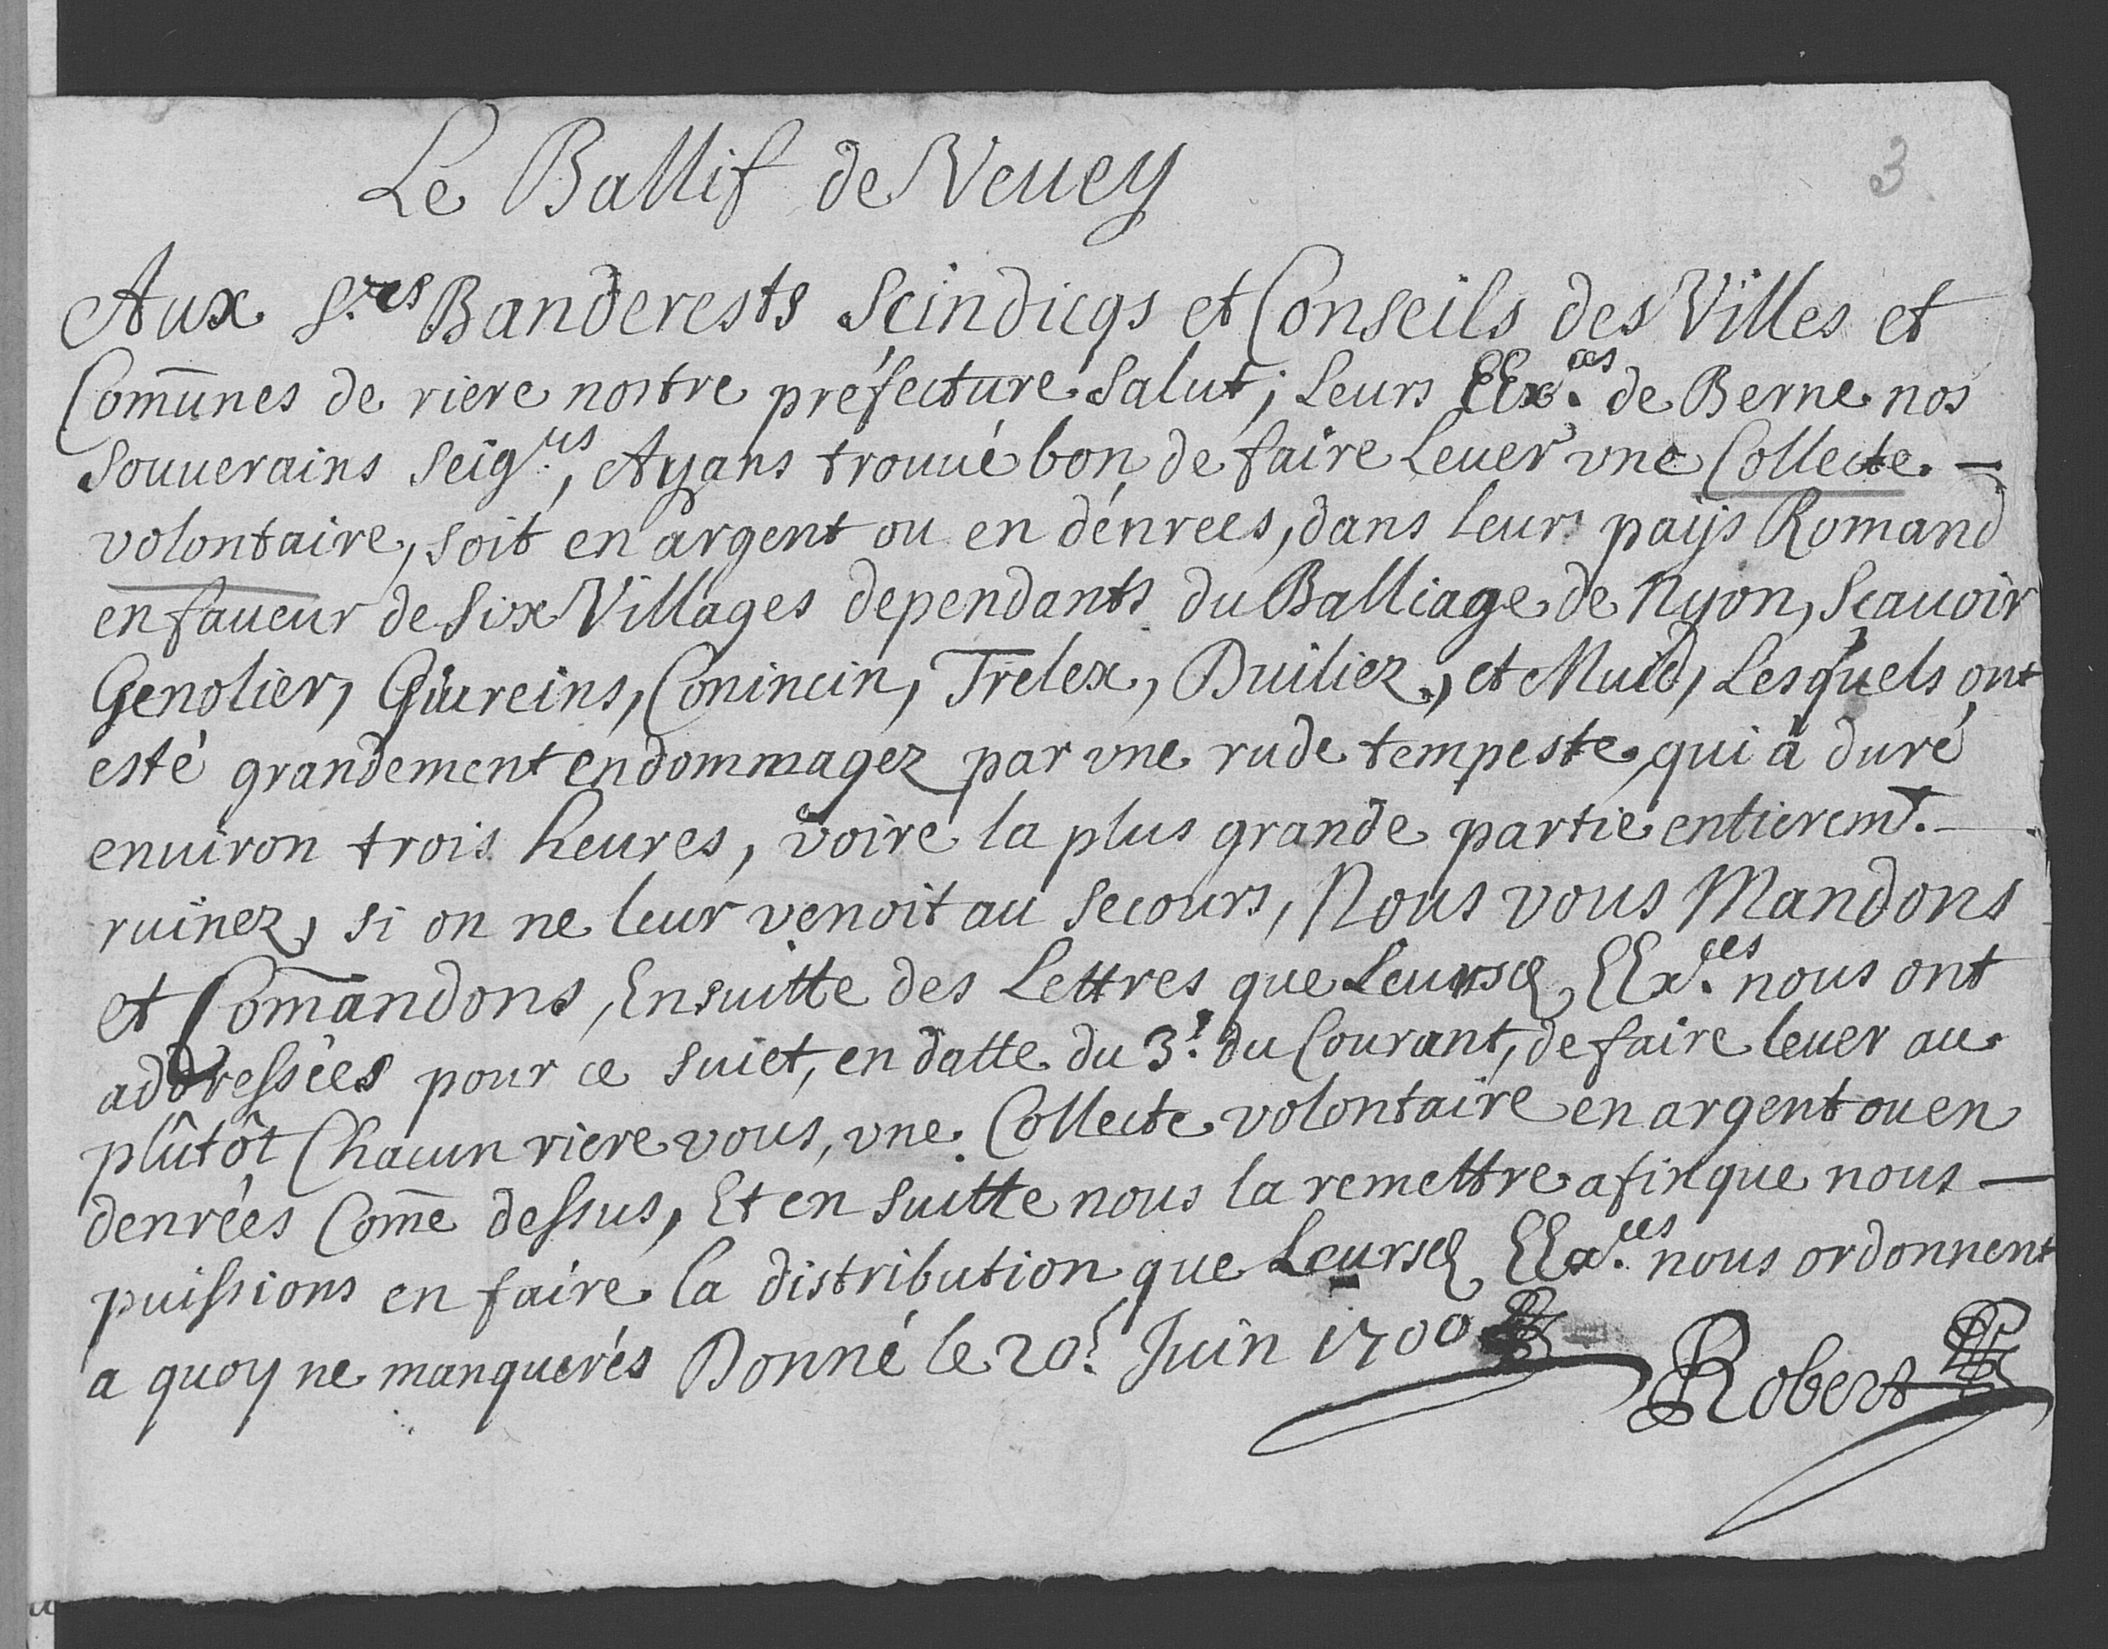 3
Le Ballif de Veuey
Aux S.res Banderests Scindicqs et Conseils des Villes et
Com̄unes de riere nostre préfecture Salut; Leurs EEx.ces de Berne nos
Souuerains Seig.rs, Ayans trouué bon de faire Leuer vne Collecte.—
volontaire, soit en argent ou en dénrees, dans leurs païs Romand
en faueur de Six Villages dependants du Balliage de Nyon, Scauoir
Genolier, Giureins, Conincin, Trelex, Duiliez, et Muid, Lesquels ont
esté grandement endommagez par vne rude tempeste qui à duré
enuiron trois heures, voire la plus grande partie entierem.t—
ruinez, si on ne leur venoit au secours, Nous vous Mandons
et Com̄andons, Ensuitte des Lettres que Leursd EEx.ces nous ont
addressées pour ce suiet, en datte du 3.e du Courant, de faire leuer au
plûtôt Chacun riere vous, vne Collecte volontaire en argent ou en
denrées Com̄e dessus, Et en suitte nous la remettre afin que nous—
puissions en faire la distribution que Leursd EEx.ces nous ordonnent
a quoy ne manquerés Donné le 20.e Juin 1700
Robert